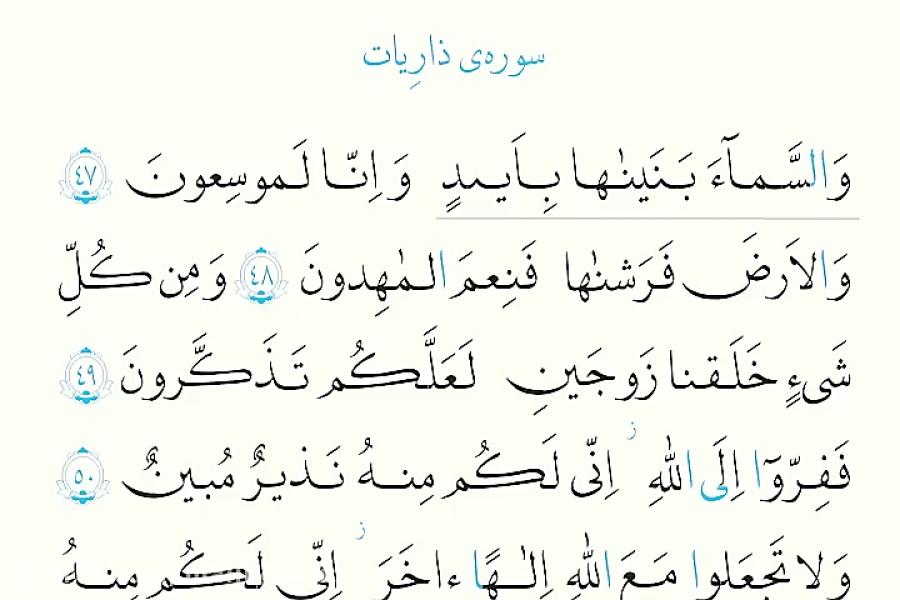 سوره‌ی ذارِیات
وَالسَّمآءَ بَنَینٰها بِاَیدٍ وَ اِنّا لَموسِعونَ ﴿٤٧﴾
وَالاَرضَ فَرَشنٰها فَنِعمَ المٰهِدونَ ﴿٤٨﴾ وَ مِن کُلِّ
شَیءٍ خَلَقنا زَوجَینِ لَعَلَّکُم تَذَکَّرونَ ﴿٤٩﴾
فَفِرّوٓا اِلَی اللّٰهِ ز اِنّی لَکُم مِنهُ نَذیرٌ مُبینٌ ﴿٥٠﴾
وَلا تَجعَلوا مَعَ اللّٰهِ اِلٰهًا ءاخَرَ ز اِنّی لَکُم مِنهُ